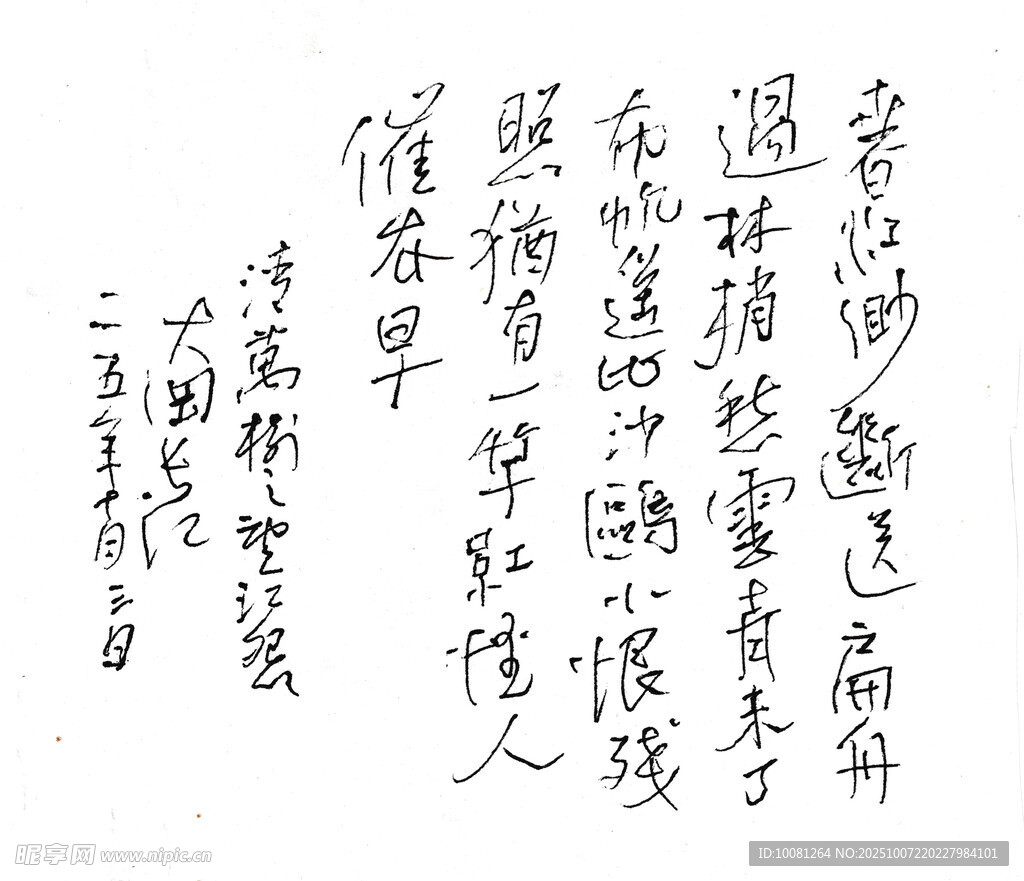 春江渺斷送扁舟
過林梢愁雲青未了
布帆遙比沙鷗小恨殘
照猶有一竿紅怪人
催去早
清萬樹之望江怨
大江
二五年十月三日
昵享网 www.nipic.cn
ID:10081264 NO:20251007220227984101